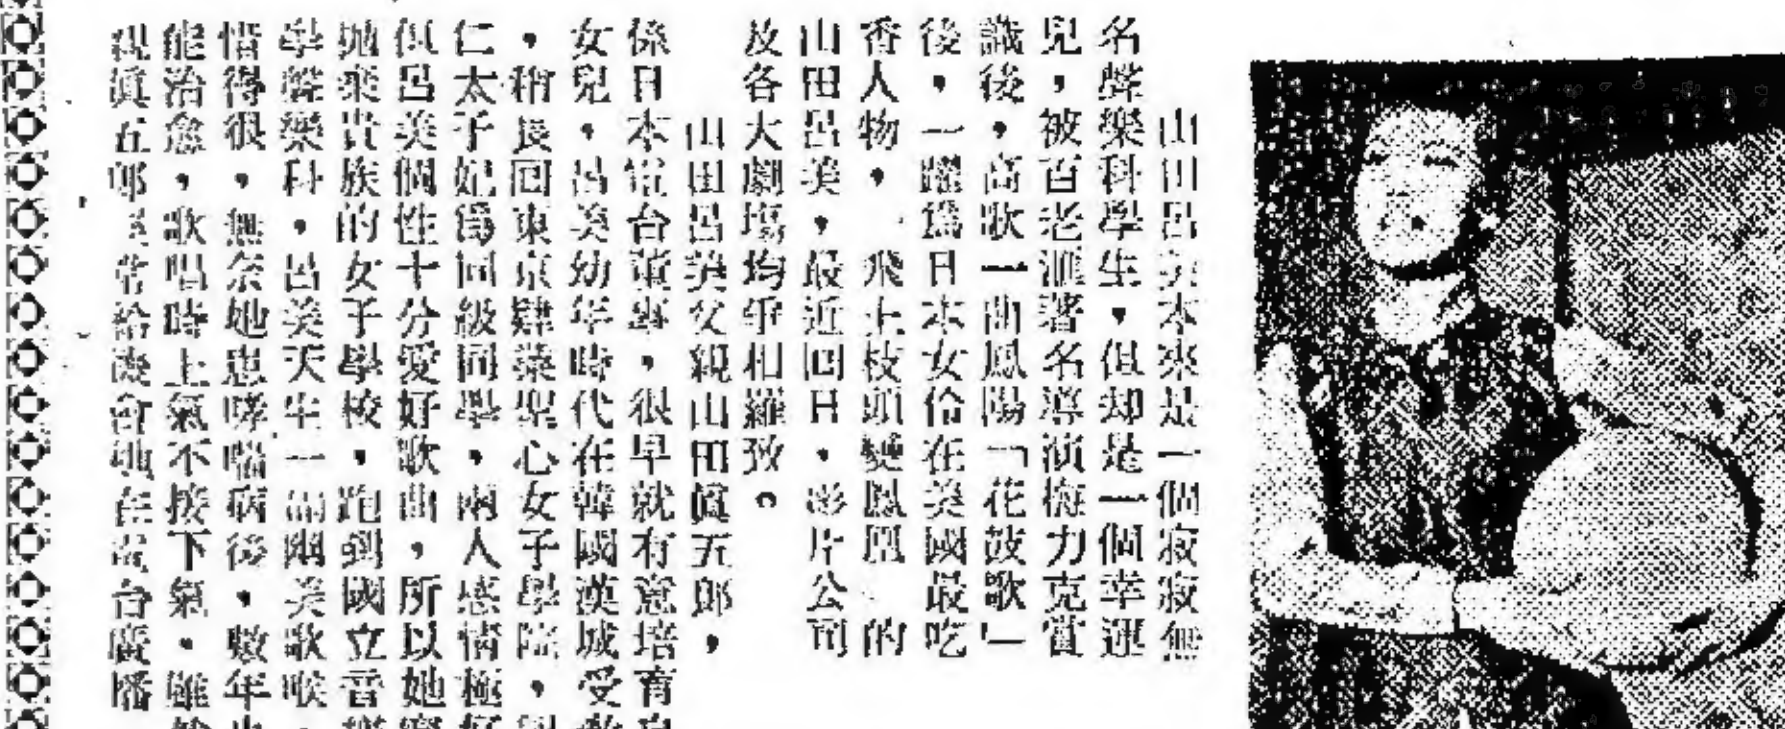 山田呂美本來是一個寂寂無
名聲樂科學生，但却是一個幸運
兒，被百老滙著名導演梅力克賞
識後，高歌一曲鳳陽「花鼓歌」
後，一躍為日本女伶在美國最吃
香人物，飛上枝頭變鳳凰的
山田呂美，最近回日，影片公司
及各大劇場均爭相羅致。
山田呂美父親山田眞五郎，
係日本電台董事，很早就有意培育
女兒，呂美幼年時代在韓國漢城受
，稍長回東京肄業聖心女子學院，
仁太子妃爲同級同學，兩人感情極
但呂美個性十分愛好歌曲，所以她
拋棄貴族的女子學校，跑到國立音
學聲樂科，呂美天生一副美歌喉
惜得很，無奈她患哮喘病後，數年
能治愈，歌唱時上氣不接下氣，雖
親眞五郎常給機會她在電台廣播